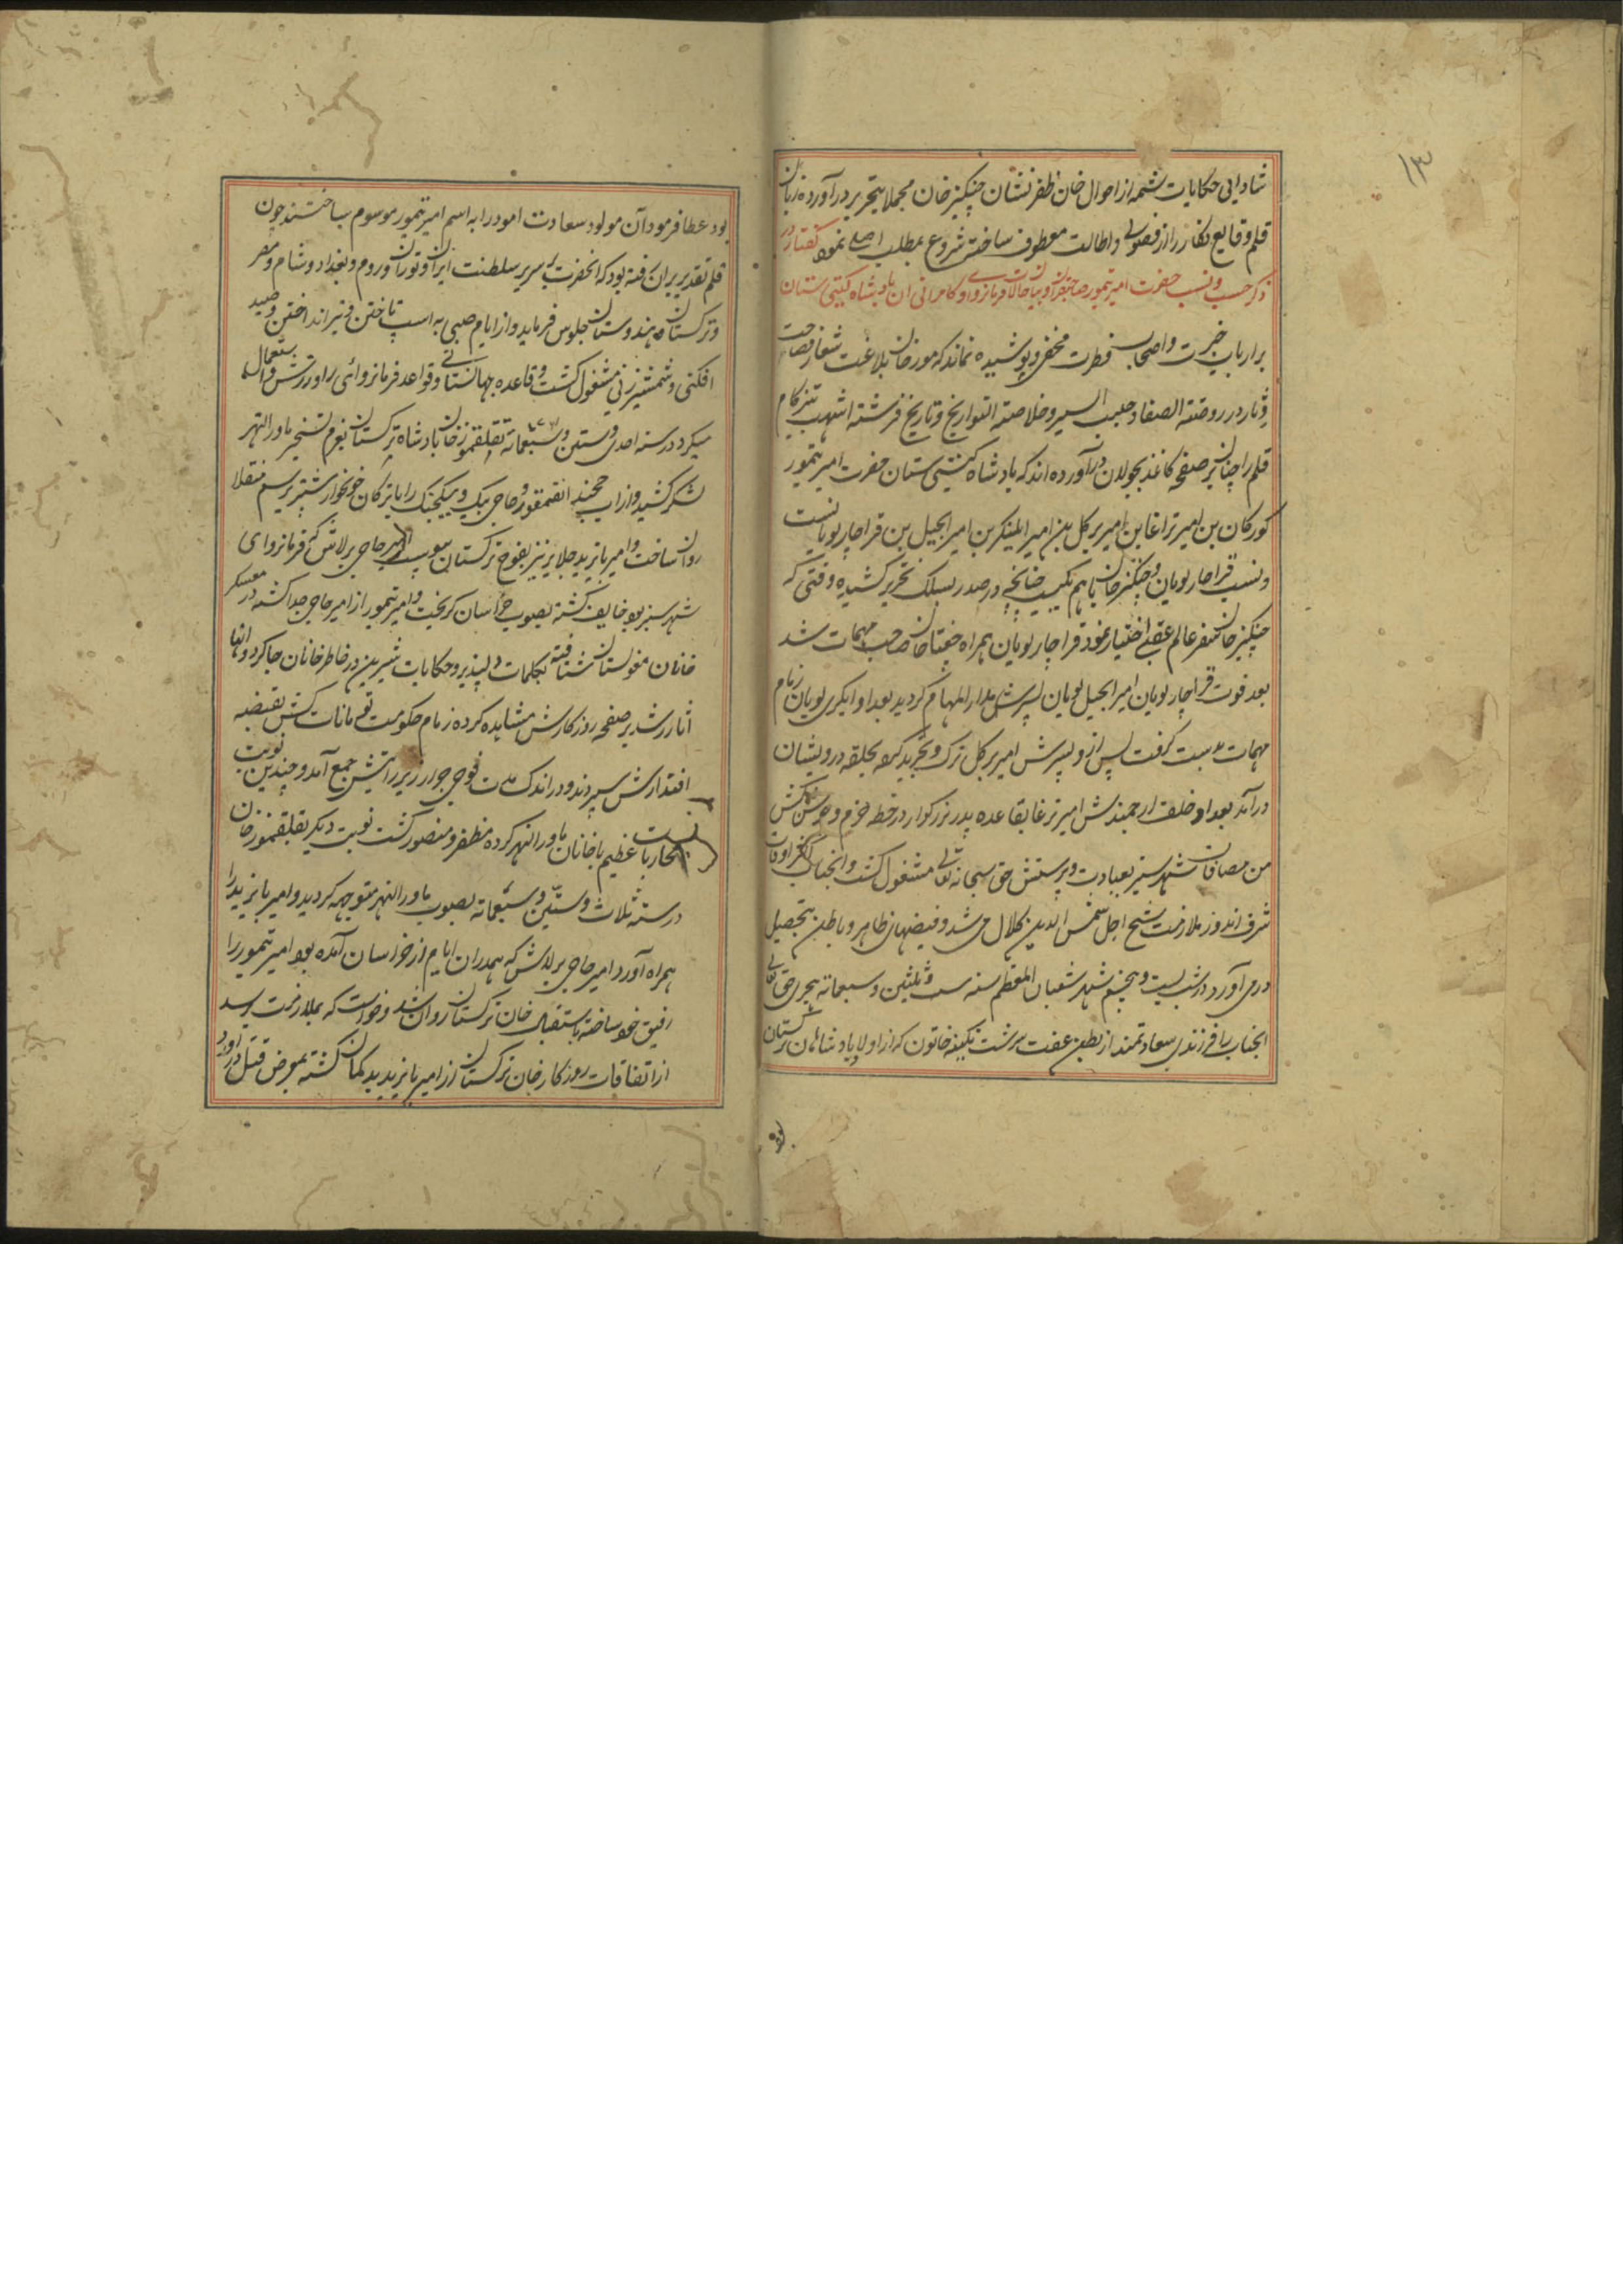 ۱۳
شادابی حکایات شمه از احوال خان ظفر نشان چنکیز خان مجملا بتحریر در آورده زبان
قلم وقایع نکار را از فضولی و اطالت معطوف ساخته شروع بمطلب اصلی نمود کفتار در
ذکر حسب و نسب حضرت امیر تیمور صاحبقران و بیان حالات فرمانروای و کامرانی ان پادشاه کیتی ستان
بر ارباب خبرت و اصحاب فطرت مخفی و پوشیده نماند که مورخان بلاغت شعار فصاحت
دثار در روضته الصفا و حبیب السیر و خلاصته التواریخ و تاریخ فرشته اشهب تیز کام
قلم را چنان بر صفحه کاغذ بجولان در آورده اند که پادشاه کیتی ستان حضرت امیر تیمور
کورکان بن امیر تراغا بن امیر برکل بن امیر المنیکر بن امیر ایجیل بن قراچار نویانست
و نسب قراچار نویان و چنکیز خان باهم چنانچه در صدر بسلک تحریر کشیده وقتی که
چنکیز خان سفر عالم عقبی اختیار نمود قراچار نویان همراه چغتا خان صاحب مهمات شد
بعد فوت قراچار نویان امیر ایجیل نویان پسرش مدار المهام کردید بعد او ایلکر نویان زمام
مهمات بدست کرفت پس از و پسرش امیر برکل ترک و تجرید کرده بحلقه درویشان
در آمد بعد او خلف ارجمندش امیر ترغا بقاعده پدر بزرکوار در خطه خرم و کش
من مضافات شهر سبز بعبادت و پرستش حق سبحانه تعالی مشغول کشت و انجناب اکثر اوقات
شرف اندوز ملازمت شیخ اجل شمس الدین کلال می شد و فیضهای ظاهر و باطن بتحصیل
در می آورد در شب بیست و پنجم شهر شعبان المعظم سنه ست و ثلثین و سبعمائه هجری حق تعالی
انجناب را فرزندی سعادتمند از بطن عفت سرشت تکینه خاتون که از اولاد پادشاهان ترکستان
بود
بود عطا فرمود آن مولود سعادت امود را به اسم امیر تیمور موسوم ساختند چون
قلم تقدیر بران رفته بود که انحضرت بر سریر سلطنت ایران و توران و روم و بغداد و شام و مصر
و ترکستان و هندوستان جلوس فرماید و از ایام صبی به اسپ تاختن و تیر انداختن و صید
افکنی و شمشیر زنی مشغول کشت و قاعده جهانستانی و قواعد فرمانروائی را ورزش و استعمال
میکرد در سنه احدی و ستین و سبعمائه ۷۶۱ تقلقتموز خان پادشاه ترکستان بعزم تسخیر ماور النهر
لشکر کشید و از اب خجند و حاجی بیک و بیکجک را با ترکان خونخوار پیشتر برسم منقلا
روان ساخت و امیر بایزید جلایر نیز بفوج ترکستان پیوست امیر حاجی برلاش که فرمانروای
شهر سبز بود خایف کشته بصوب خراسان کریخت و امیر تیمور از امیر حاجی جدا کشته در معسکر
خانان مغولستان شتافته بکلمات دلپذیر و حکایات شیرین در خاطر خانان جا کرد و انها
اثار رشد بر صفحه روزکارش مشاهده کرده زمام حکومت کش بقبضه
اقتدارش سپردند و در اندک مدت فوجی جرار زیر رایتش جمع آمد و چندین نوبت
محاربات عظیم با خانان ماور النهر کرده مظفر و منصور کشت نوبت دیکر تقلقتموز خان
در سنه ثلاث و ستین و سبعمائه بصوب ماور النهر متوجهه کردید و امیر بایزید را
همراه آورد امیر حاجی برلاش که همدران ایام از خراسان آمده بود امیر تیمور را
رفیق خود ساخته باستقبال خان ترکستان روان شد و خواست که بملازمت رسد
از اتفاقات روزکار خان ترکستان از امیر بایزید بدکمان کشته بمعرض قتل در اورد